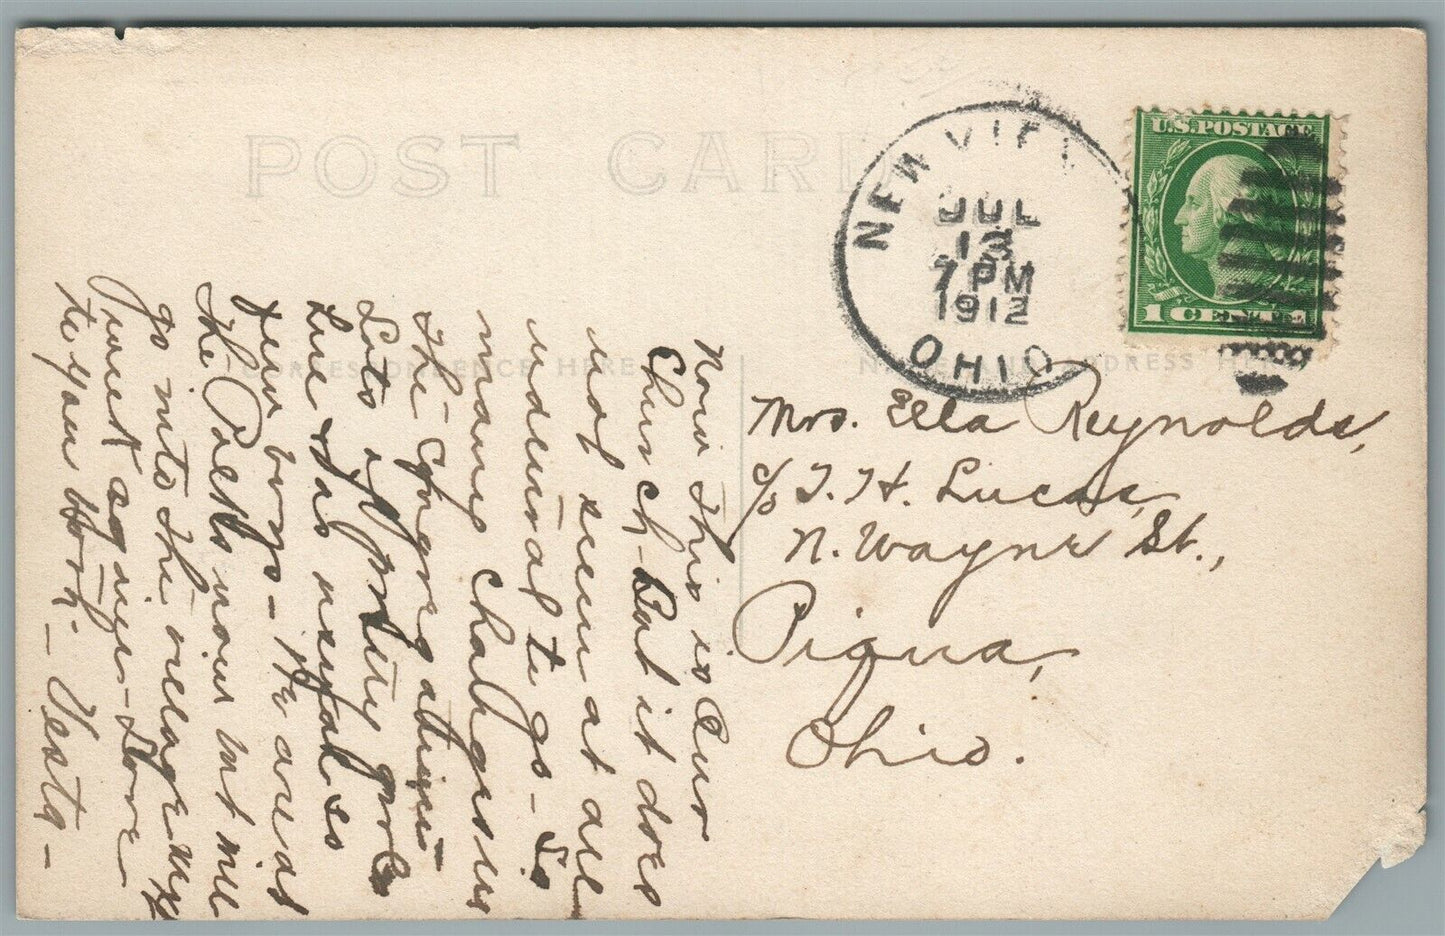 POST CARD
CORRESPONDENCE HERE
NAME AND ADDRESS HERE
NEW VIE
JUL
13
7 PM
1912
OHIO
U.S. POSTAGE
1 CENT 1
Mrs. Ella Reynolds,
c/o T. H. Lucas,
N. Wayne St.,
Piqua,
Ohio.
Now this is our
Church - But it does
not seem at all
natural to go - So
many changes in
the Congregation
Lots of pretty girls
here & as usual so
few boys - We are at
the Park now but will
go into the village next
week again - Love
to you both - Vesta -